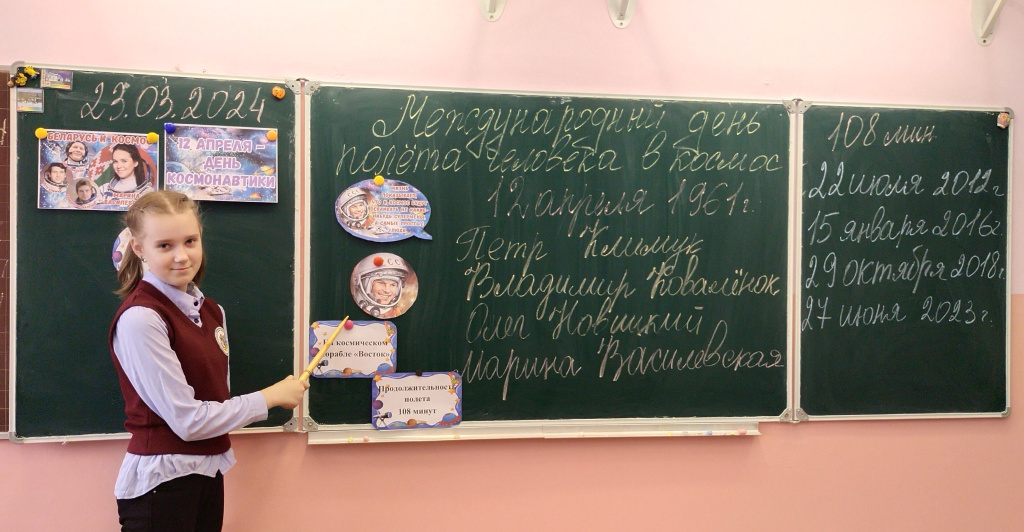 23.03.2024
БЕЛАРУСЬ И КОСМО
МАРИНА
12 АПРЕЛЯ –
ДЕНЬ
КОСМОНАВТИКИ
Международный день
полёта человека в космос
12 апреля 1961 г.
Петр Климук
Владимир Ковалёнок
Олег Новицкий
Марина Василевская
космическом
корабле «Восток»
Продолжительность
полета
108 минут
108 мин.
22 июля 2012 г
15 января 2016 г
29 октября 2018 г.
27 июня 2023 г.